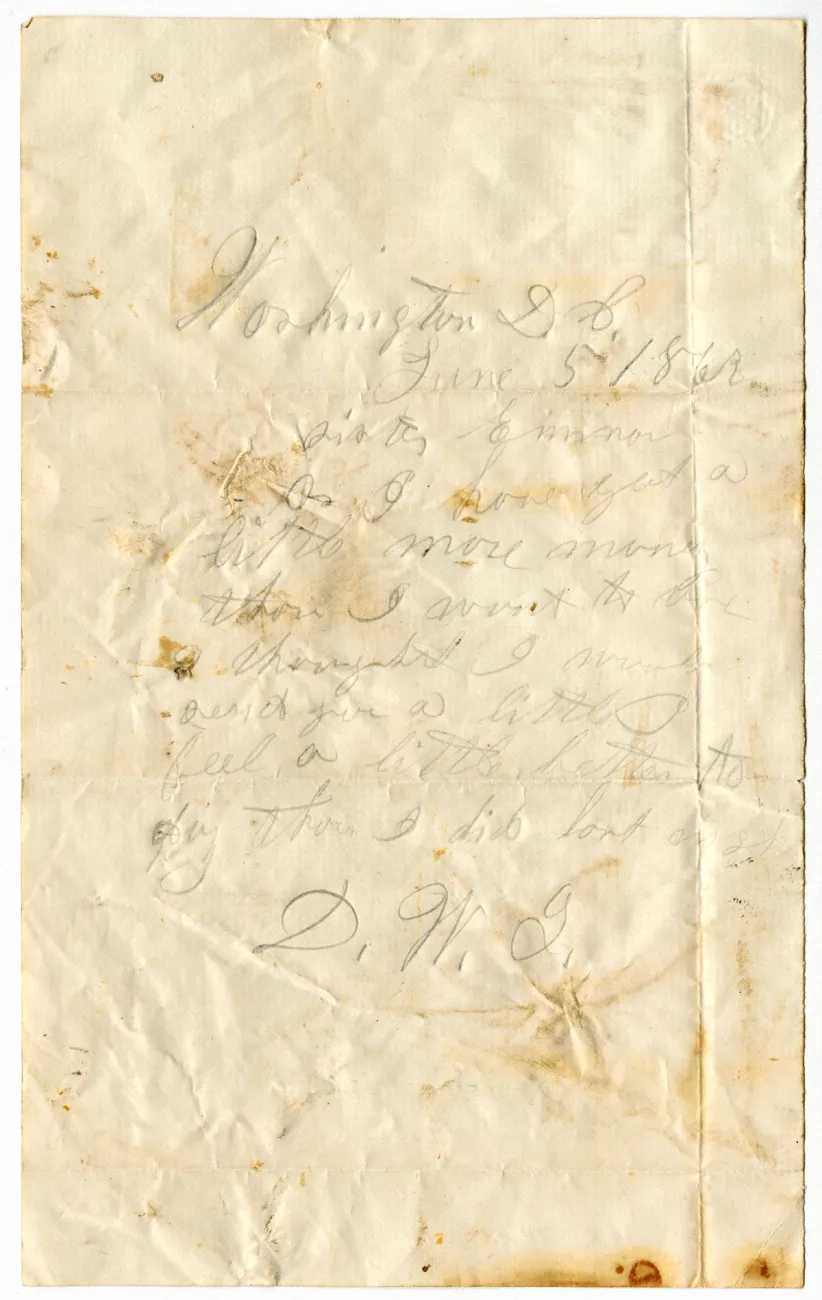 Washington D C.
June 5 1862
sister Emma
as I have got a
little more money
than I want to
I thought I would
send you a little I
feel a little better to
day than I did last
D. W. G.